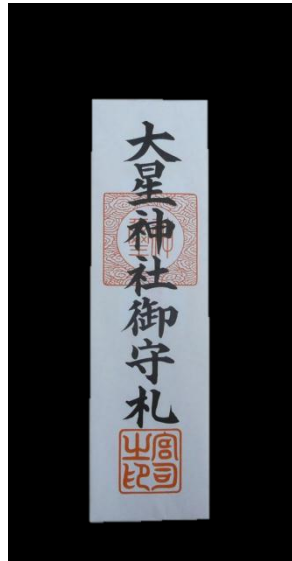 大星神社御守札
宮司之印